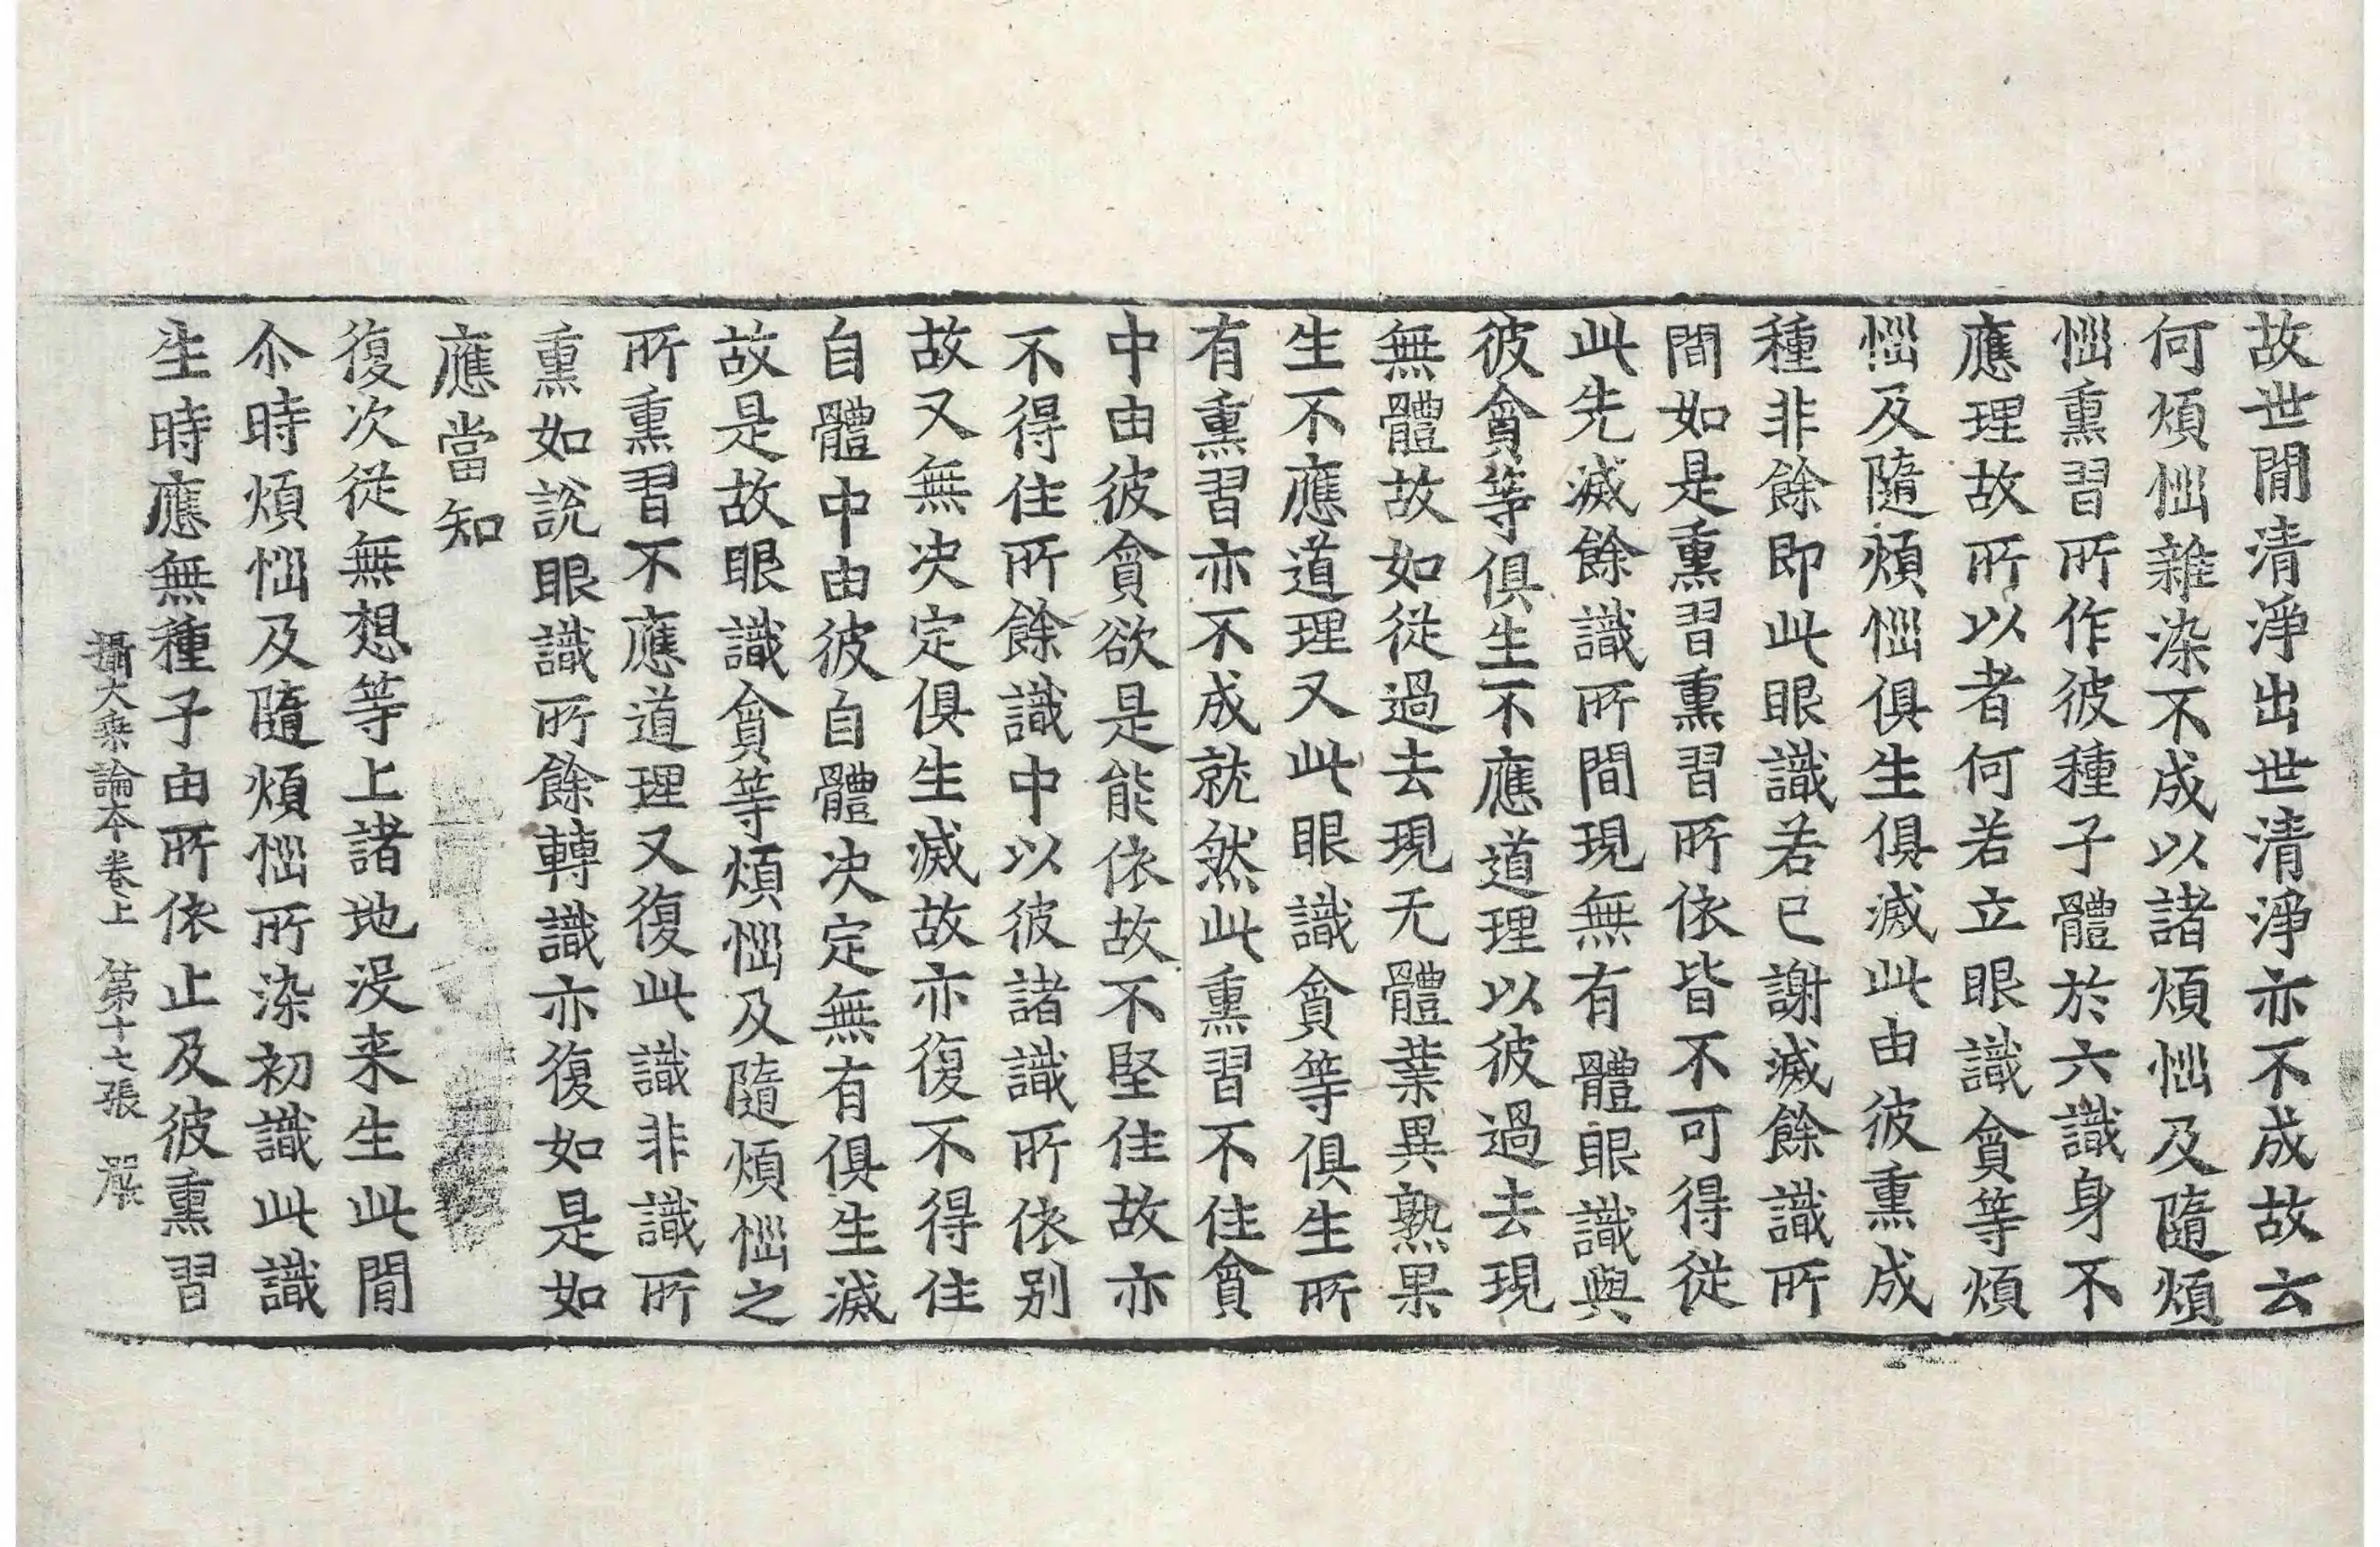 故世閒清淨出世清淨亦不成故云
何煩惱雜染不成以諸煩惱及隨煩
惱熏習所作彼種子體於六識身不
應理故所以者何若立眼識貪等煩
惱及隨煩惱俱生俱滅此由彼熏成
種非餘即此眼識若已謝滅餘識所
間如是熏習熏習所依皆不可得從
此先滅餘識所間現無有體眼識與
彼貪等俱生不應道理以彼過去現
無體故如從過去現无體業異熟果
生不應道理又此眼識貪等俱生所
有熏習亦不成就然此熏習不住貪
中由彼貪欲是能依故不堅住故亦
不得住所餘識中以彼諸識所依别
故又無决定俱生滅故亦復不得住
自體中由彼自體决定無有俱生滅
故是故眼識貪等煩惱及隨煩惱之
所熏習不應道理又復此識非識所
熏如說眼識所餘轉識亦復如是如
應當知
復次從無想等上諸地沒来生此間
尒時煩惱及隨煩惱所染初識此識
生時應無種子由所依止及彼熏習
攝大乘論本卷上 第十七張